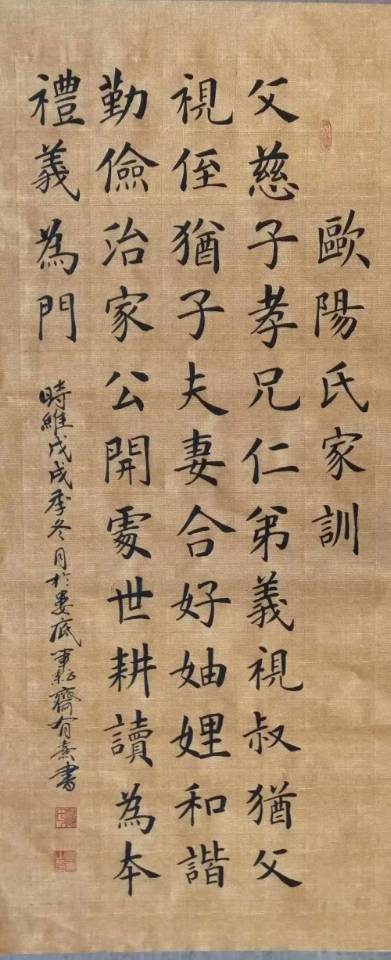 歐陽氏家訓
父慈子孝兄仁弟義視叔猶父
視侄猶子夫妻合好妯娌和諧
勤儉治家公開處世耕讀為本
禮義為門
時維戊戌季冬月於婁底
齋有熹書